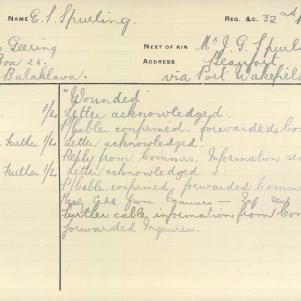 NAME E. S. Spurling. REG. &c. 32nd
Geering NEXT OF KIN Mr J. G. Spurl
Box 25. ADDRESS Beaufort
Balaklava. via Port Wakefield
"Wounded"
Letter acknowledged.
P/Cable confirmed. forwarded to Com
Further Letter acknowledged.
Reply from Commrs. Information se
Further Letter acknowledged.
P/Cable confirmed forwarded Comm
Reply Cable from Commrs —
Further cable information from Com
forwarded Inquirer.